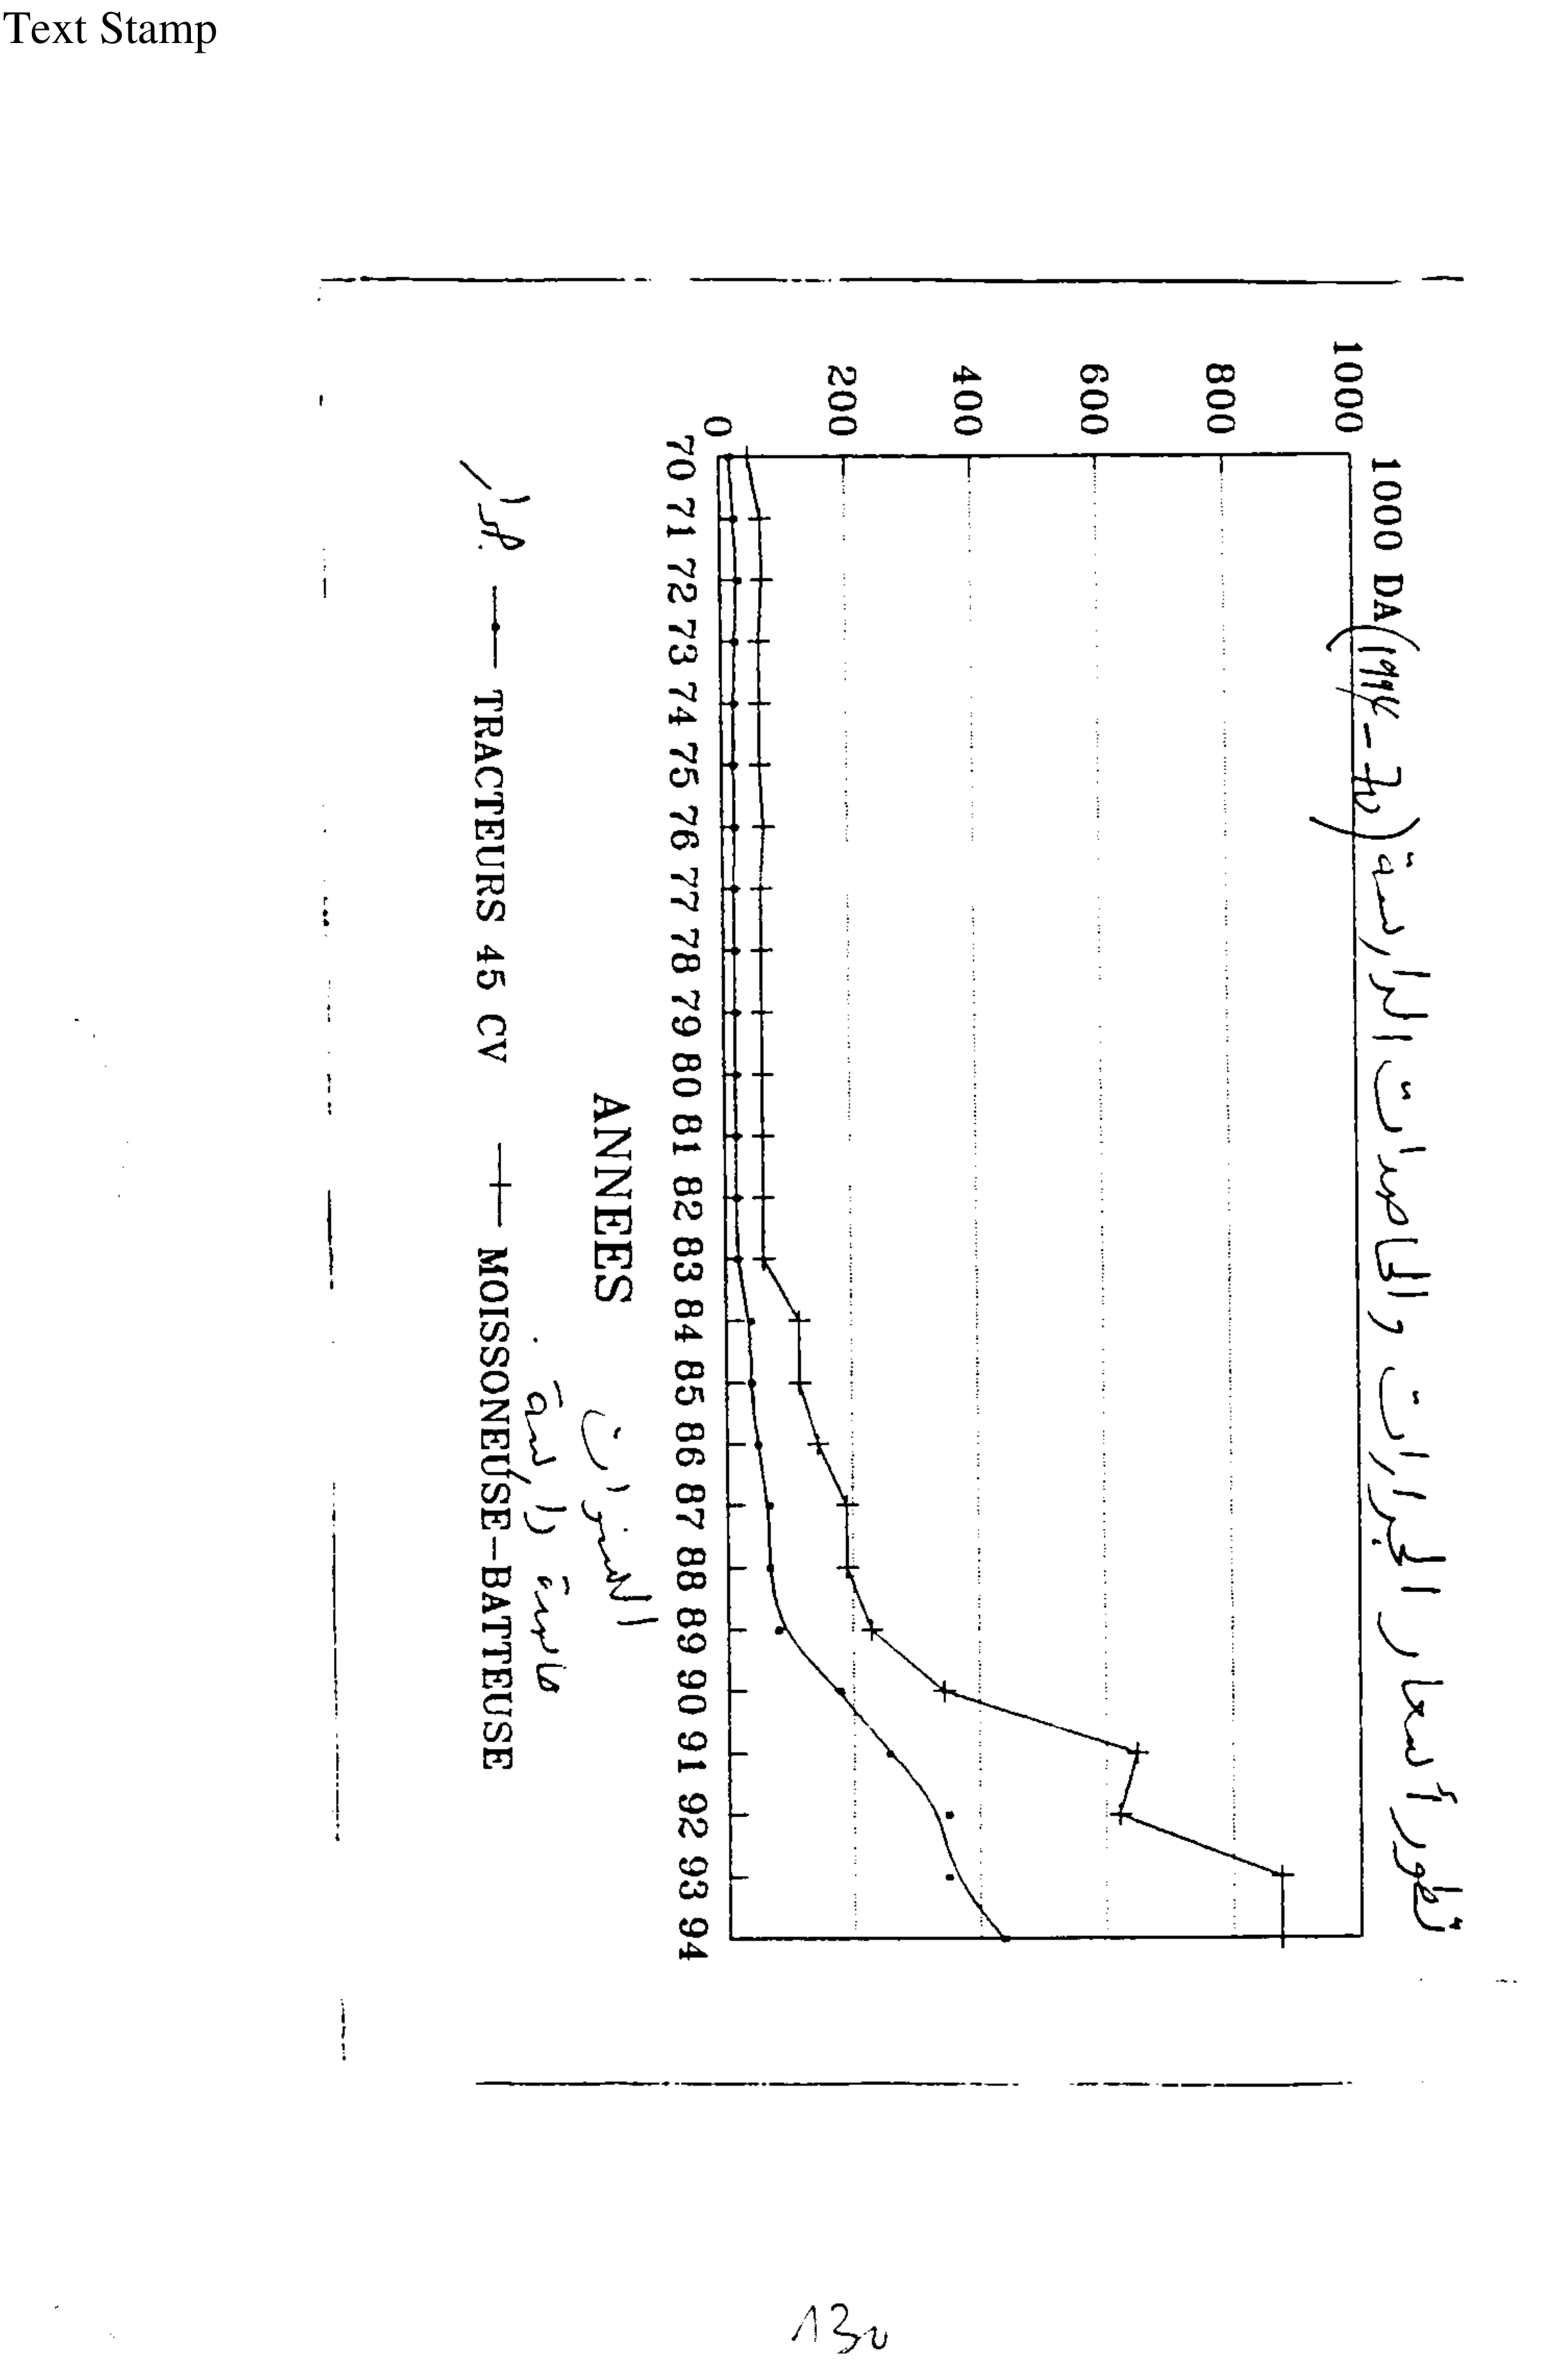 Text Stamp
تطور أسعار الجرارات والحاصدات الدارسة (70-1994)
1000 DA
1000
800
600
400
200
0
70 71 72 73 74 75 76 77 78 79 80 81 82 83 84 85 86 87 88 89 90 91 92 93 94
ANNEES السنوات
حاصدة دارسة
جرار TRACTEURS 45 CV MOISSONEUSE-BATTEUSE
130